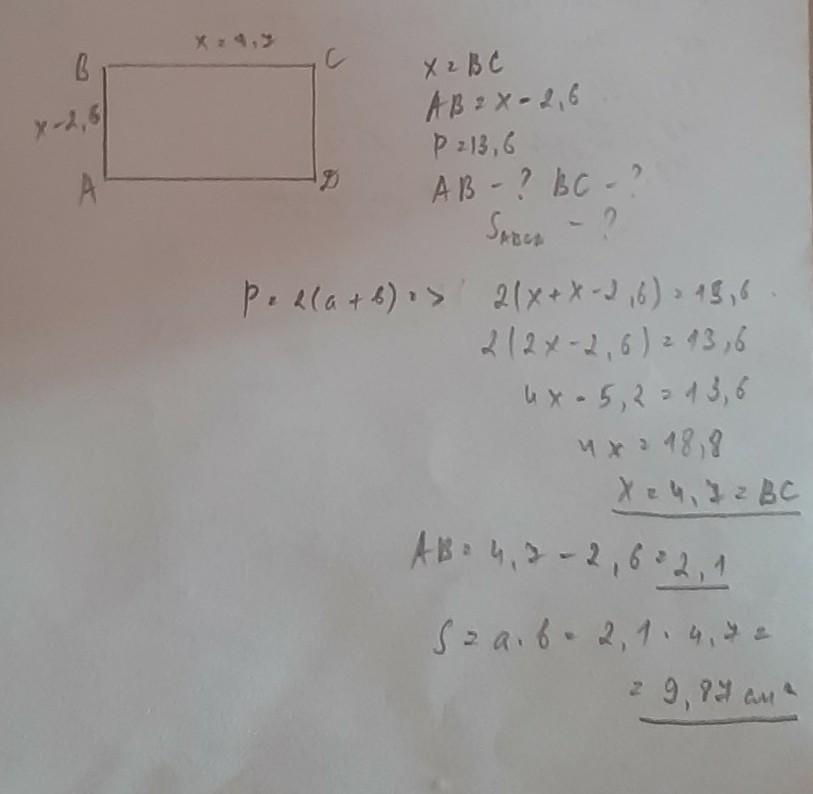 x = 4,7
B
C
x - 2,6
A
D
x = BC
AB = x - 2,6
P = 13,6
AB - ? BC - ?
S ABCD - ?
P = 2(a + b) => 2(x + x - 2,6) = 13,6
2(2x - 2,6) = 13,6
4x - 5,2 = 13,6
4x = 18,8
x = 4,7 = BC
AB = 4,7 - 2,6 = 2,1
S = a · b = 2,1 · 4,7 =
= 9,87 см²